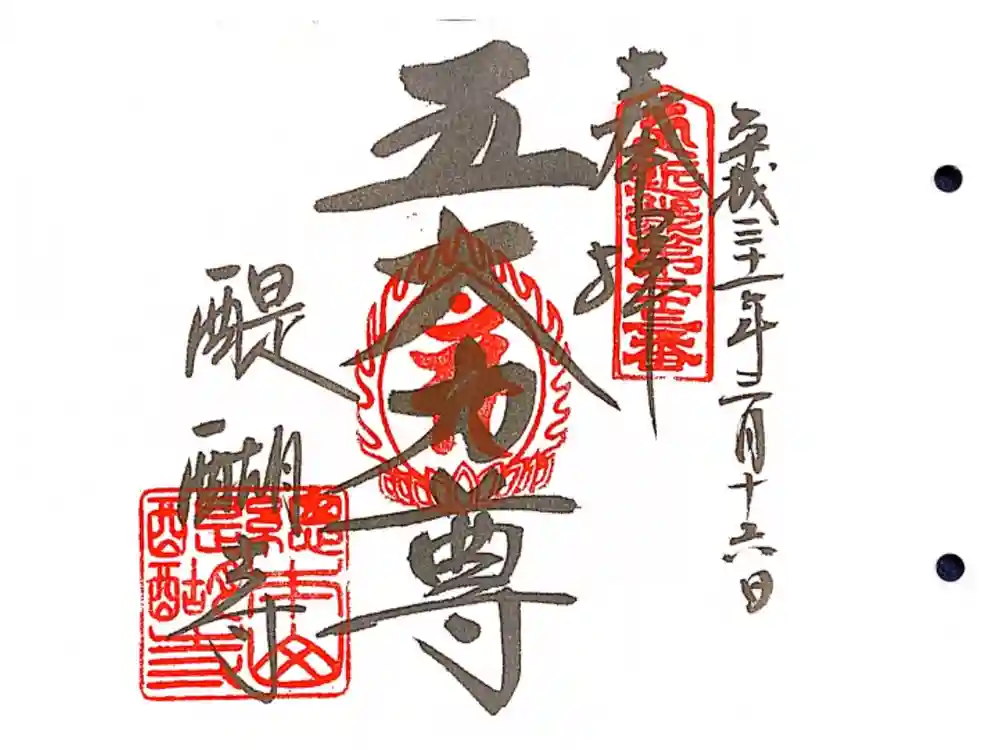 平成三十一年三月十六日
奉拝
五大力尊
醍醐寺
総本山醍醐寺